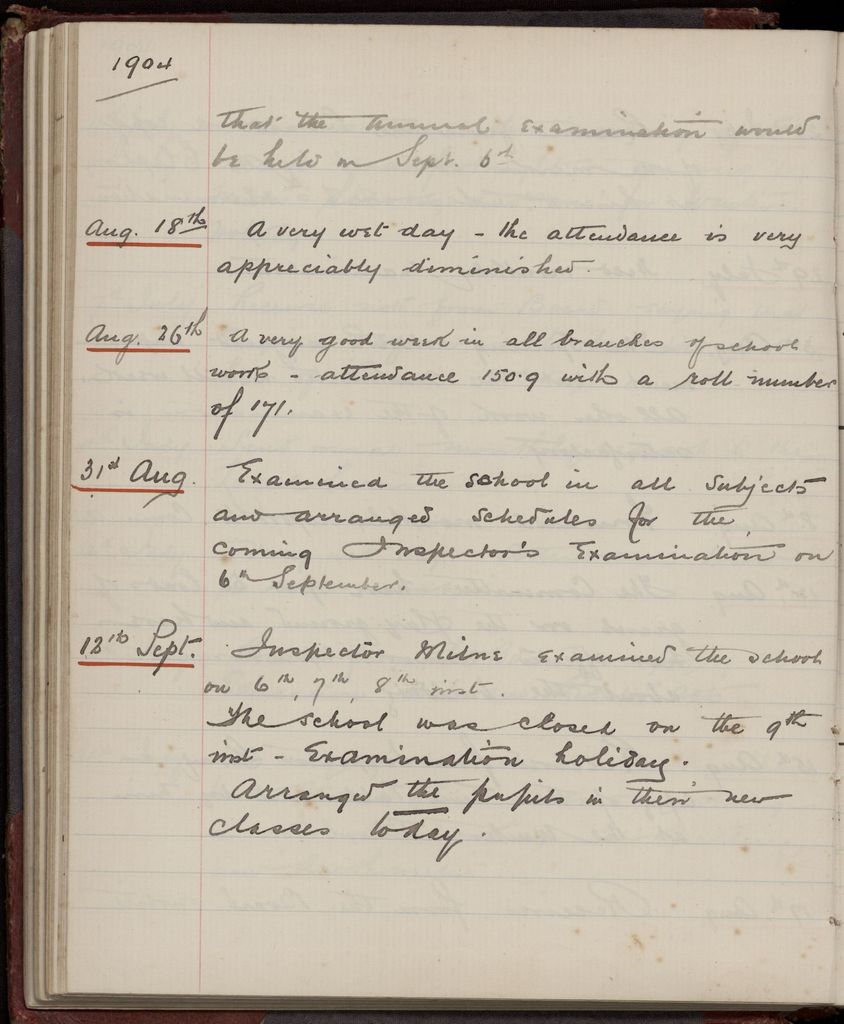 1904
that the annual examination would
be held on Sept. 6th
Aug. 18th A very wet day - the attendance is very
appreciably diminished.
Aug. 26th A very good week in all branches of school
work - attendance 150.9 with a roll number
of 171.
31st Aug. Examined the school in all subjects
and arranged schedules for the
coming Inspector's Examination on
6th September.
12th Sept. Inspector Milne examined the school
on 6th, 7th, 8th inst.
The school was closed on the 9th
inst - Examination holiday.
Arranged the pupils in their new
classes today.